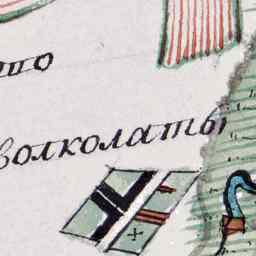 волколаты